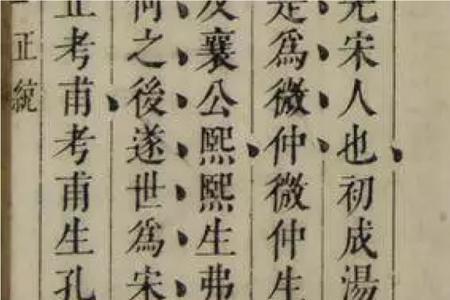 先宋人也初成湯
是爲微仲微仲生
及襄公熙熙生弗
何之後遂世爲宋
正考甫考甫生孔
正統